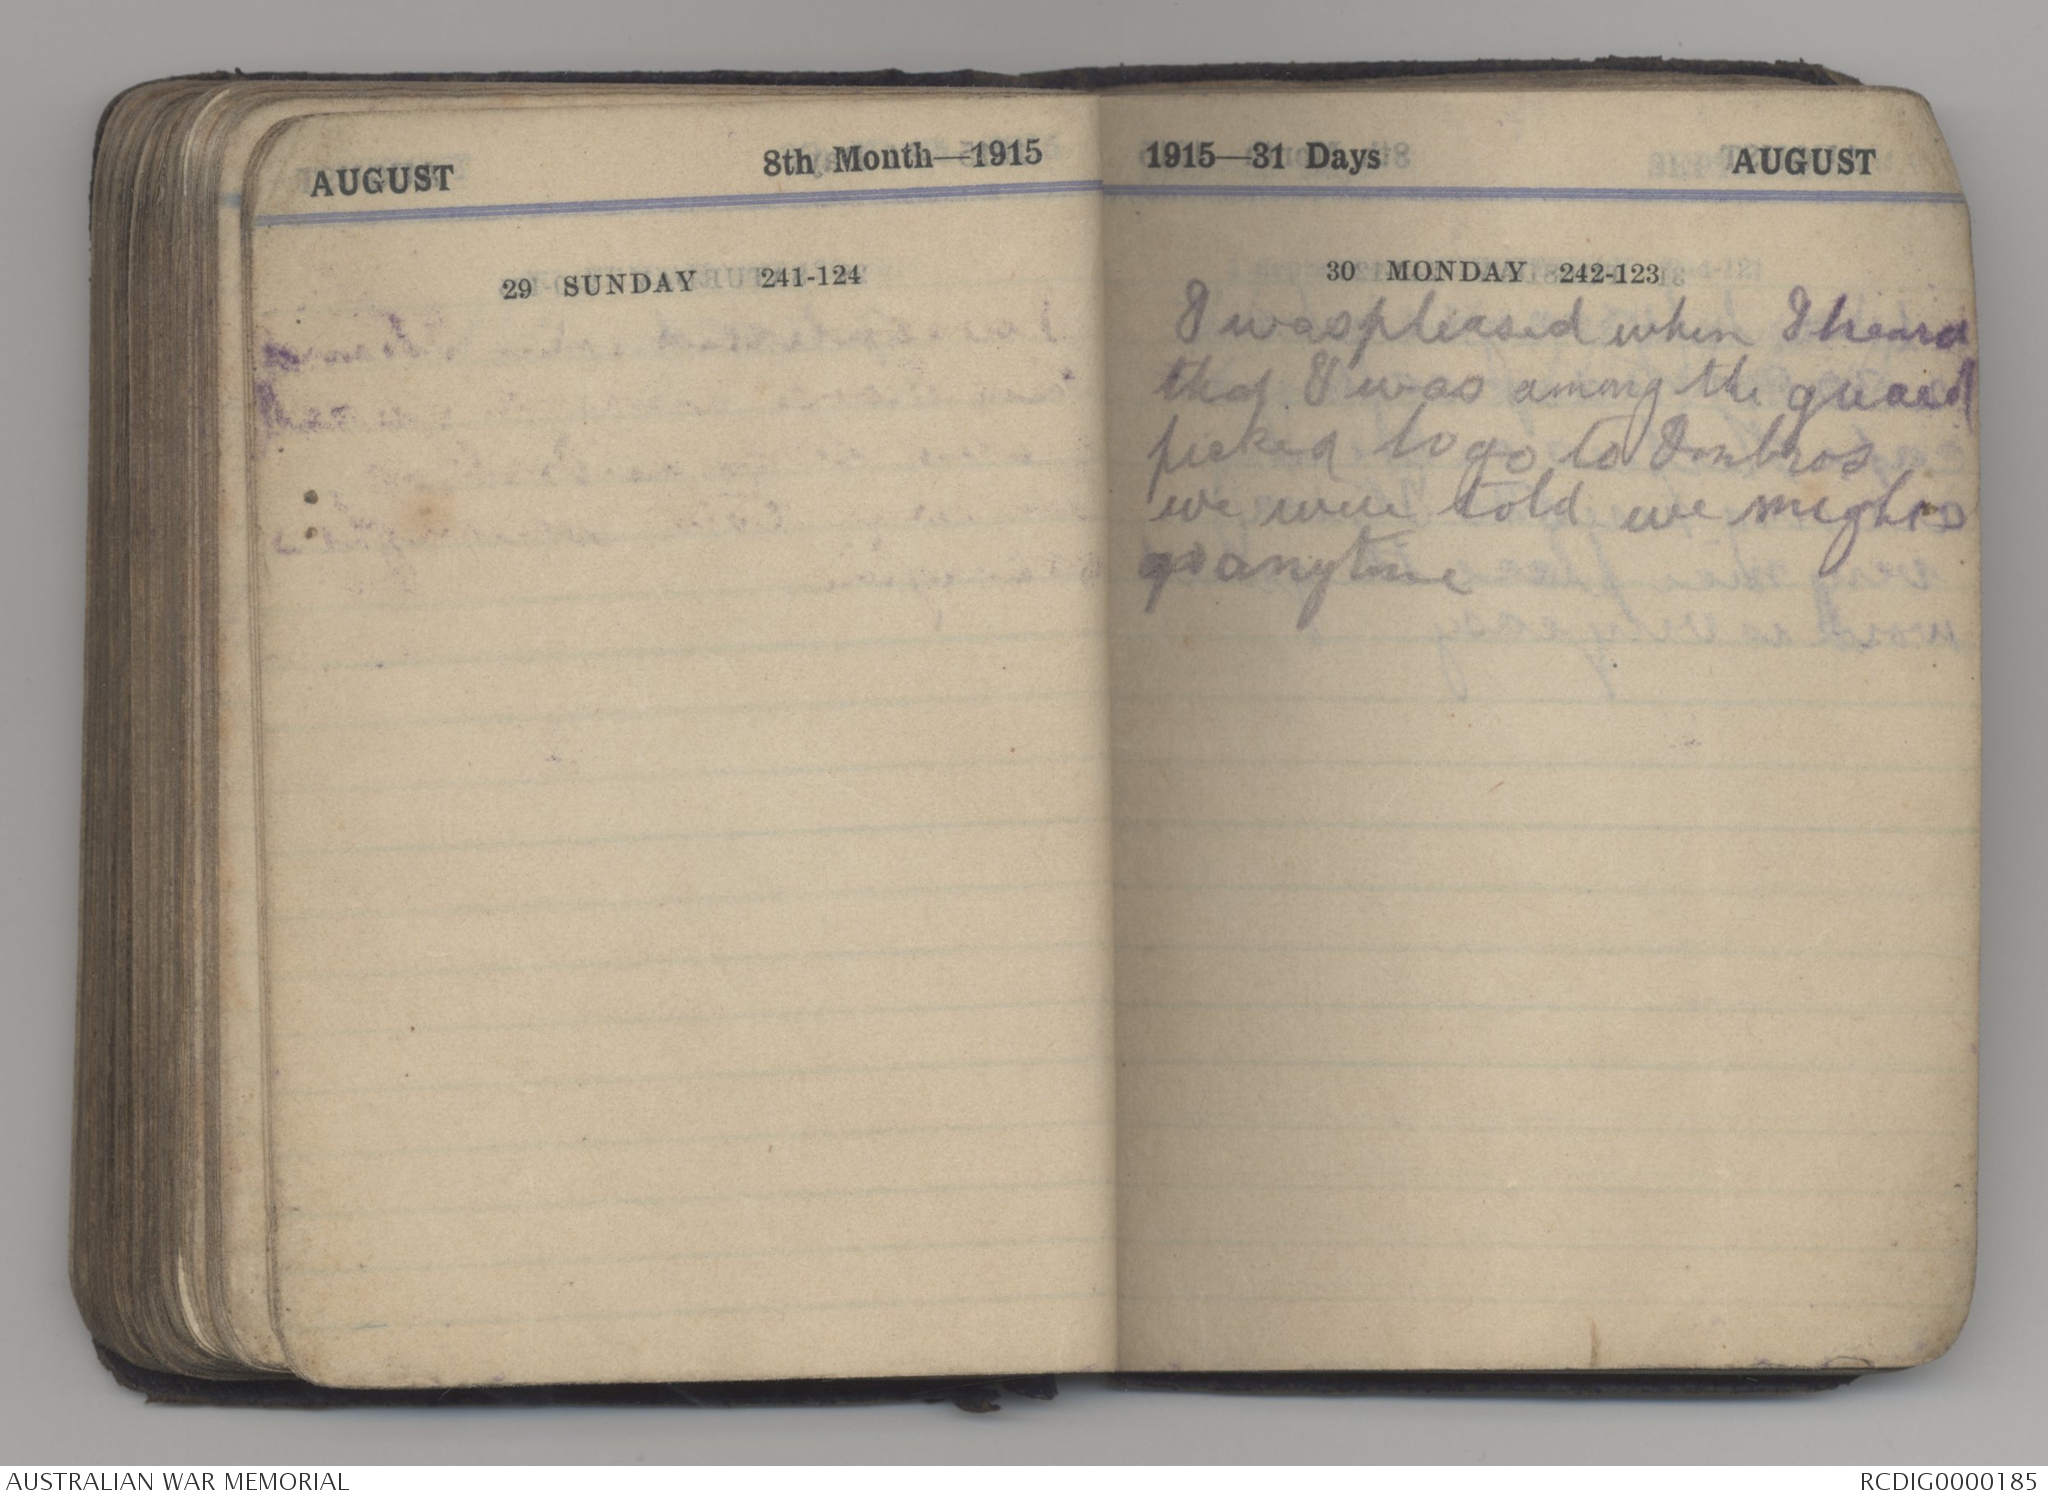 AUGUST 8th Month—1915
29 SUNDAY 241-124
1915—31 Days AUGUST
30 MONDAY 242-123
I was pleased when I heard
that I was among the guard
picked to go to Imbros
we were told we might
go anytime
AUSTRALIAN WAR MEMORIAL RCDIG0000185